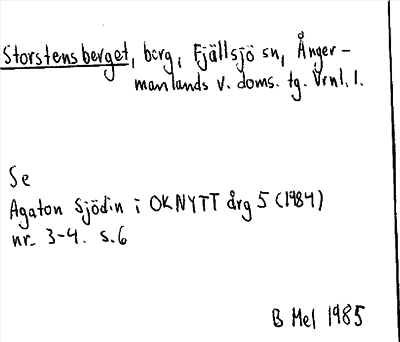 Storstensberget, berg, Fjällsjö sn, Ånger-
manlands v. doms. tg. Vrnl. l.
Se
Agaton Sjödin i OKNYTT årg 5 (1984)
nr. 3-4. s.6
B Mel 1985